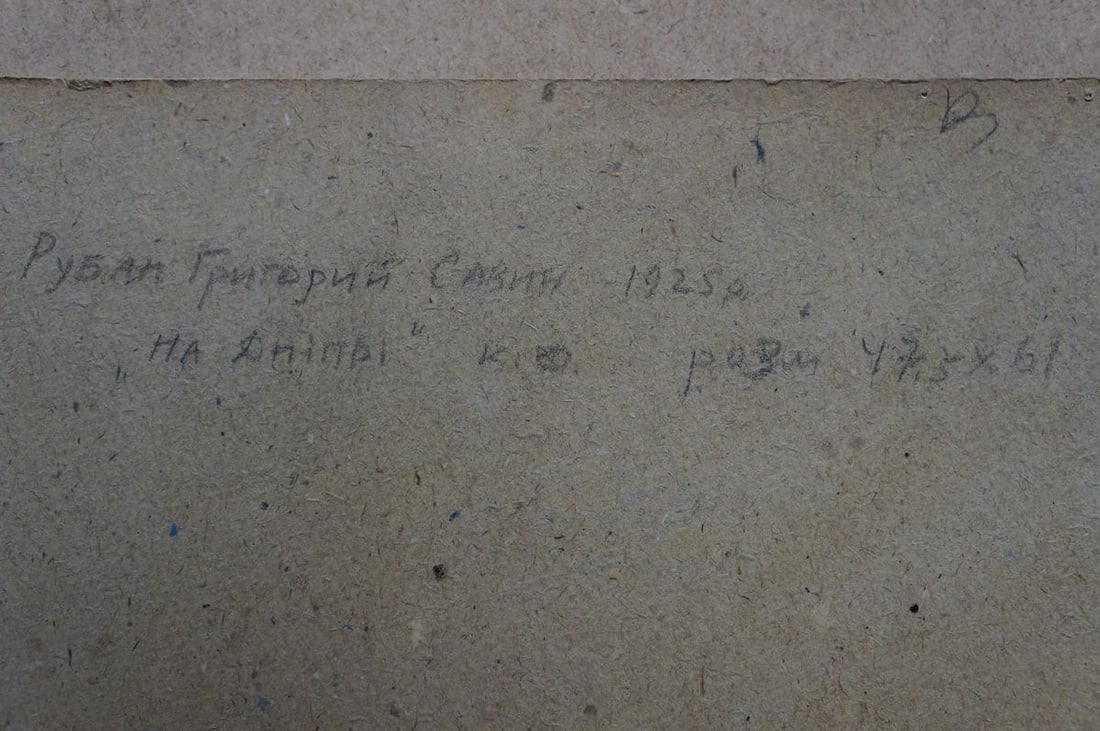 Рубан Григорий Савич 1925р
„На Дніпрі" к.о. розм 47,5х61